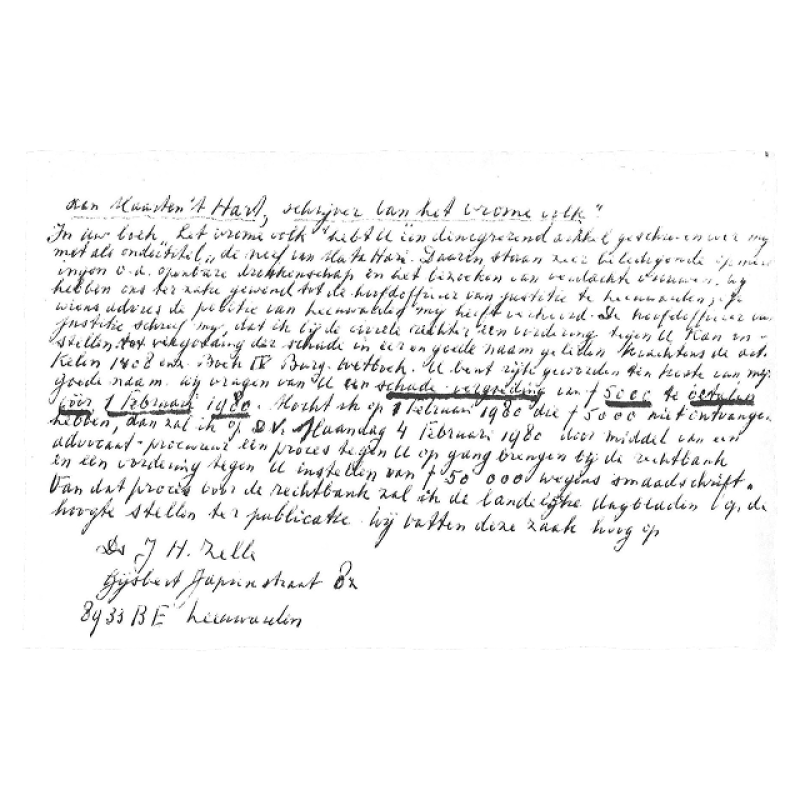 Aan Maarten 't Hart, schrijver van het vrome volk"
In uw boek „ het vrome volk" hebt U een denegrerend artikel geschreven over mij
met als ondertitel „ de neef van Mata Hari. Daarin staan zeer beledigende opmerk
ingen o.a. openbare dronkenschap en het bezoeken van verdachte vrouwen. Wij
hebben ons ter zake gewend tot de hoofdofficier van justitie te Leeuwarden,
wiens adres de politie van Leeuwarden mij heeft De hoofdofficier van
justitie schreef mij, dat ik bij de civiele rechter een vordering tegen U kan in-
stellen tot vergoeding der schade in eer en goede naam geleden krachtens de art
ikelen 1408 enz. Boek IV Burg. wetboek. U bent rijk geworden ten koste van mijn
goede naam. Wij vragen van U een schade-vergoeding van f 5000 te
vóór 1 Februari 1980. Mocht ik op 1 Februari 1980 die f 5000 niet ontvangen
hebben, dan zal ik op D.V. Maandag 4 Februari 1980 door middel van een
advocaat-procureur een proces tegen U op gang brengen bij de rechtbank
en een vordering tegen U instellen van f 50 000 wegens smaadschrift"
Van dat proces voor de rechtbank zal ik de landelijke dagbladen op de
hoogte stellen ter publicatie. Wij vatten deze zaak hoog op
Ds J H. Zelle
Gijsbert Japicxstraat 82
8933 BE Leeuwarden